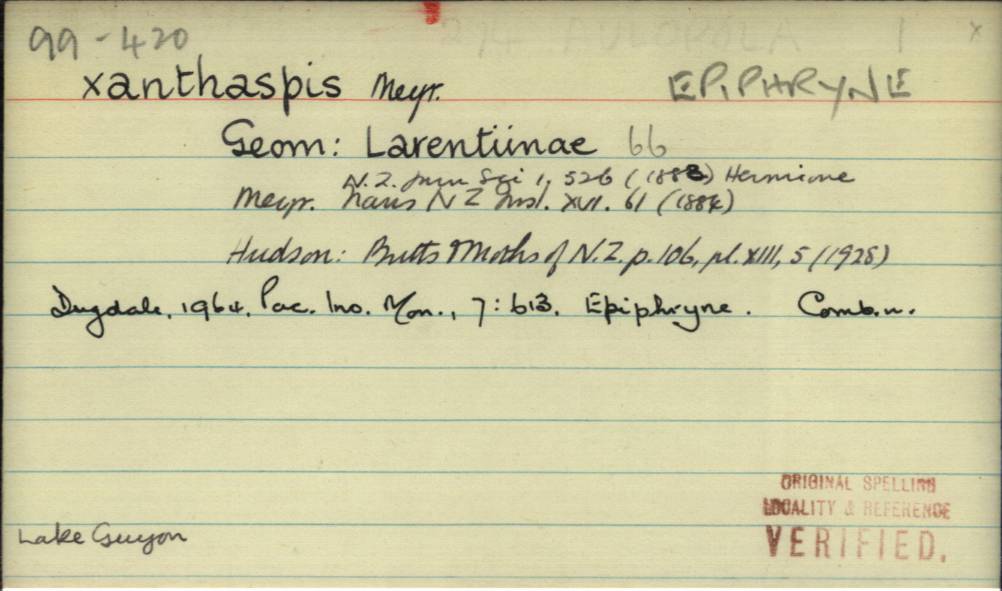 99-420 274 1 x
xanthaspis Meyr. EPIPHRYNE
Geom: Larentiinae 66
N.Z. Jnrn Sci 1, 526 (1883) Hermione
Meyr. Trans N Z Inst. XVI. 61 (1884)
Hudson: Butts & Moths of N.Z. p. 106, pl. XIII, 5 (1928)
Dugdale, 1964, Pac. Ins. Mon., 7: 613. Epiphryne. Comb. n.
ORIGINAL SPELLING
LOCALITY & REFERENCE
VERIFIED.
Lake Guyon